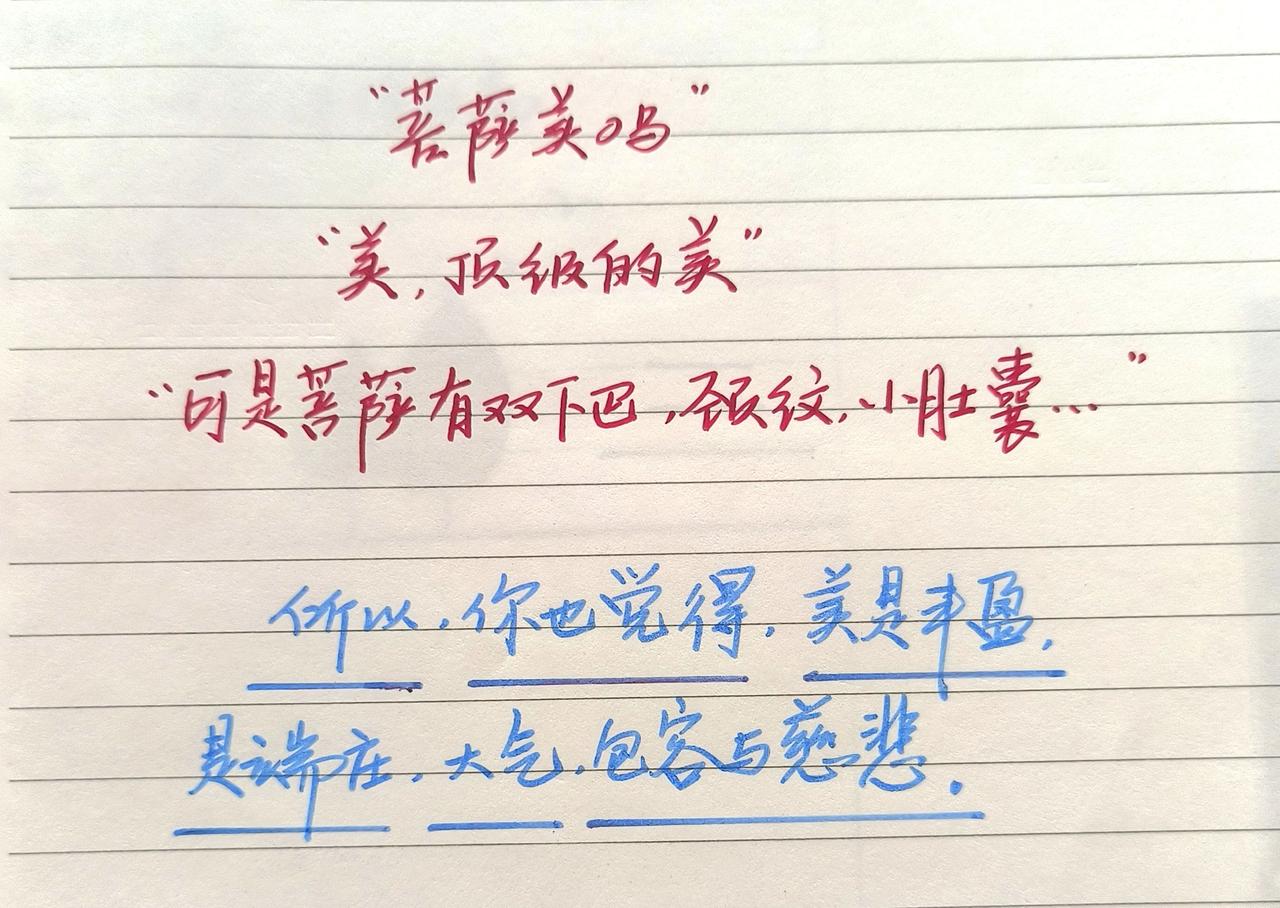 “菩萨美吗”
“美，顶级的美”
“可是菩萨有双下巴，颈纹，小肚囊…”
所以，你也觉得，美是丰盈，
是端庄，大气，包容与慈悲。